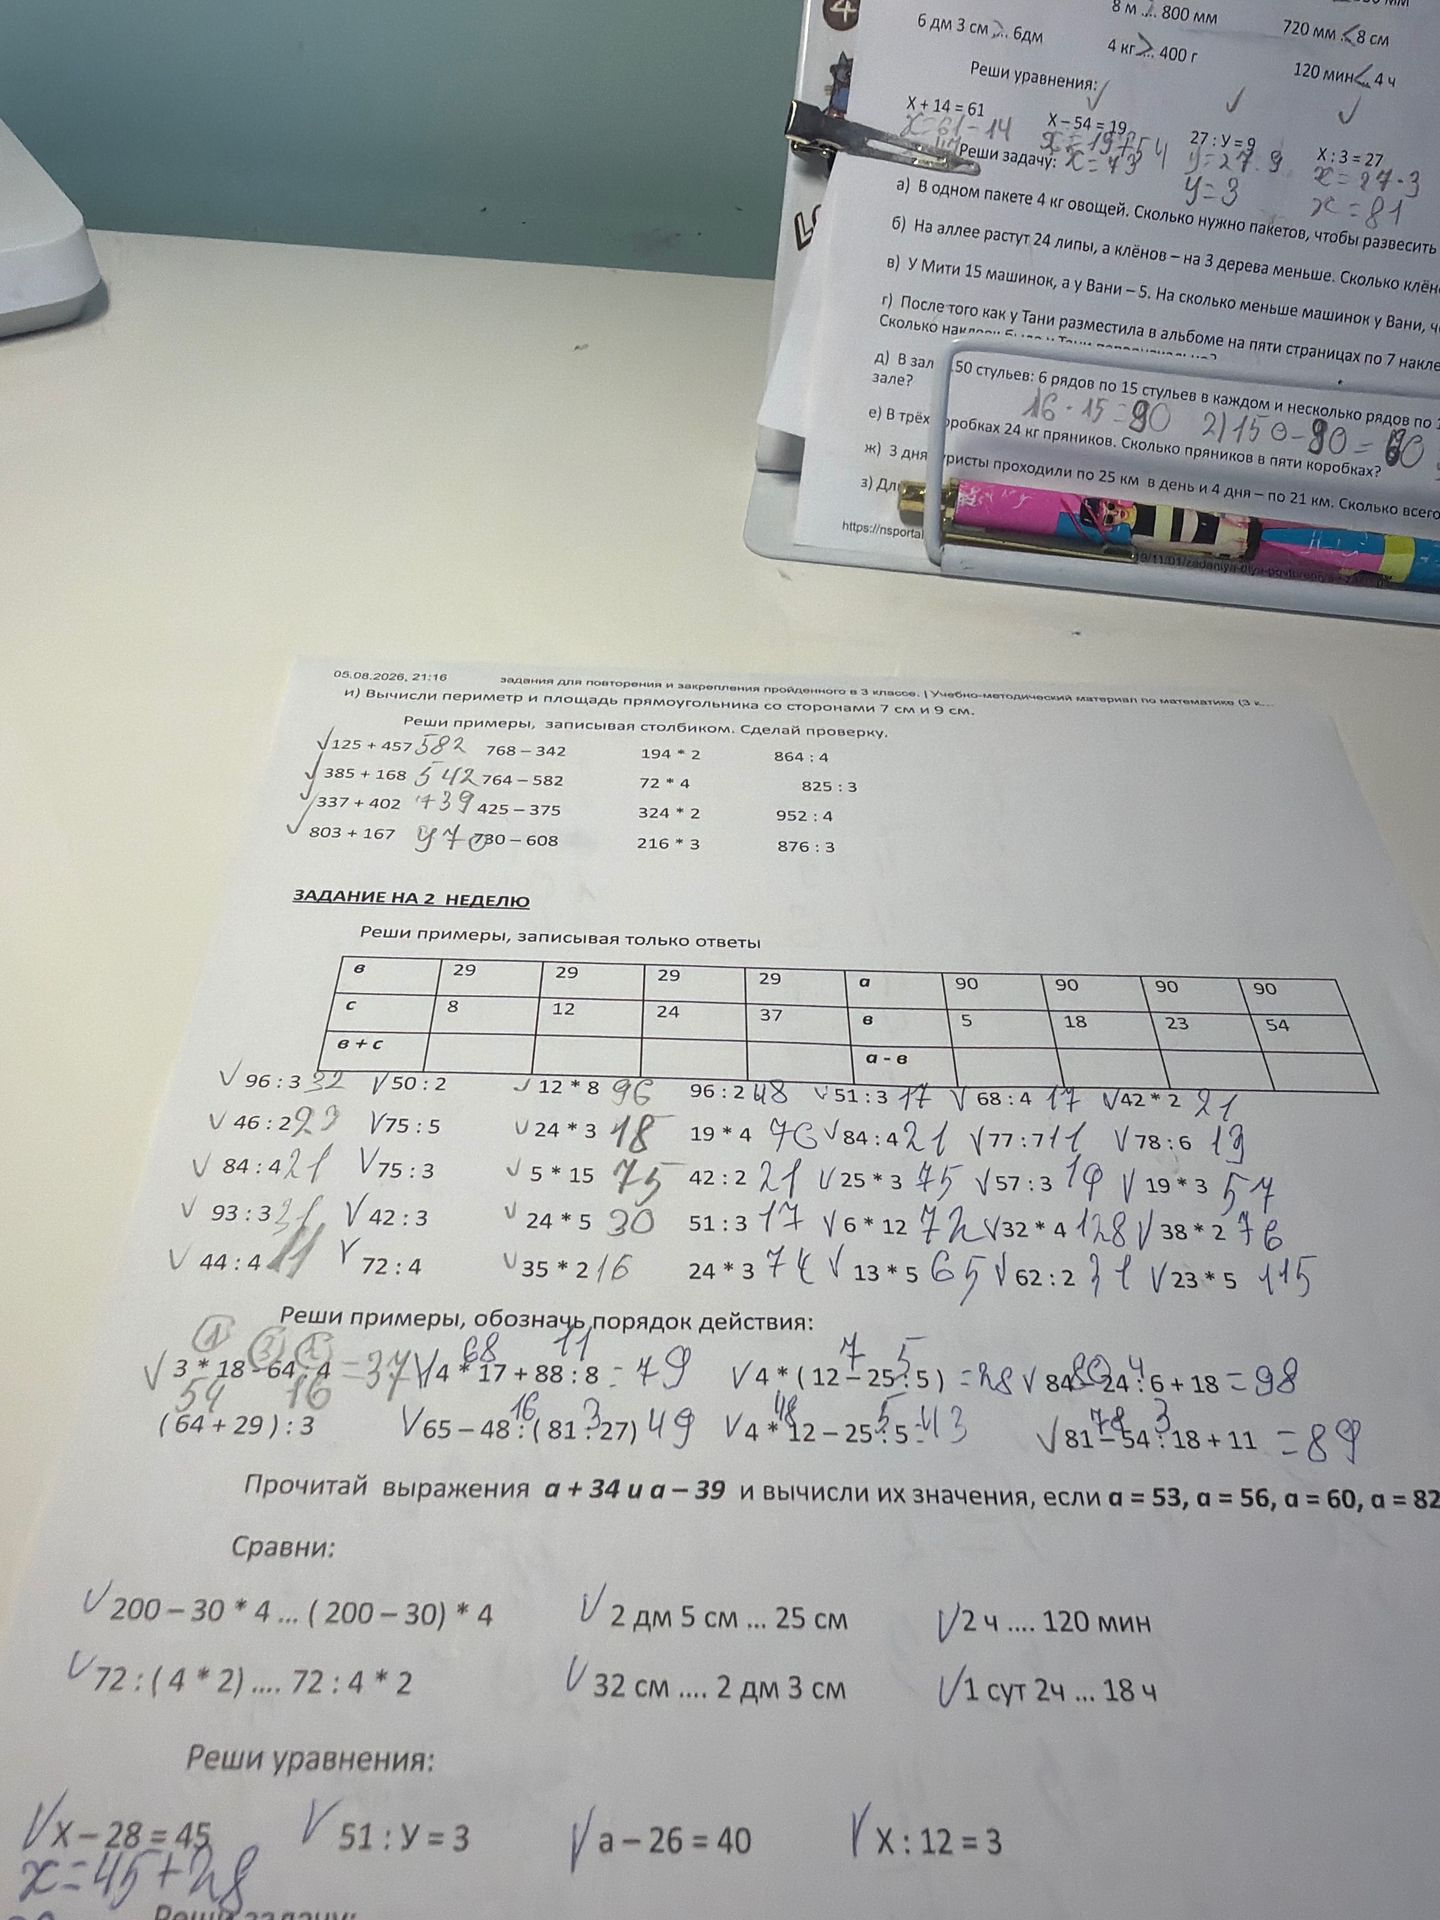 8 м .... 800 мм
6 дм 3 см > ... 6дм
720 мм ... < 8 см
4 кг > ... 400 г
120 мин < ... 4 ч
Реши уравнения:
X + 14 = 61 X – 54 = 19 27 : У = 9 X : 3 = 27
x=61-14 x=19+54 y=27:9 x=27·3
Реши задачу: x=73 y=3 x=81
а) В одном пакете 4 кг овощей. Сколько нужно пакетов, чтобы развесить
б) На аллее растут 24 липы, а клёнов – на 3 дерева меньше. Сколько клён
в) У Мити 15 машинок, а у Вани – 5. На сколько меньше машинок у Вани, ч
г) После того как у Тани разместила в альбоме на пяти страницах по 7 накле
Сколько наклеек было у Тани первоначально?
д) В зал 150 стульев: 6 рядов по 15 стульев в каждом и несколько рядов по 1
зале?
16·15=90 2)150-90=60
е) В трёх оробках 24 кг пряников. Сколько пряников в пяти коробках?
ж) 3 дня уристы проходили по 25 км в день и 4 дня – по 21 км. Сколько всего
з) Дл
https://nsportal
05.08.2026, 21:16 задания для повторения и закрепления пройденного в 3 классе. | Учебно-методический материал по математике (3 к...
и) Вычисли периметр и площадь прямоугольника со сторонами 7 см и 9 см.
Реши примеры, записывая столбиком. Сделай проверку.
√ 125 + 457 582 768 – 342 194 * 2 864 : 4
√ 385 + 168 542 764 – 582 72 * 4 825 : 3
√ 337 + 402 739 425 – 375 324 * 2 952 : 4
√ 803 + 167 970 730 – 608 216 * 3 876 : 3
ЗАДАНИЕ НА 2 НЕДЕЛЮ
Реши примеры, записывая только ответы
в 29 29 29 29 а 90 90 90 90
с 8 12 24 37 в 5 18 23 54
в + с а - в
√ 96 : 3 32 √ 50 : 2 √ 12 * 8 96 96 : 2 48 √ 51 : 3 17 √ 68 : 4 17 √ 42 * 2 21
√ 46 : 2 23 √ 75 : 5 √ 24 * 3 18 19 * 4 76 √ 84 : 4 21 √ 77 : 7 11 √ 78 : 6 13
√ 84 : 4 21 √ 75 : 3 √ 5 * 15 75 42 : 2 21 √ 25 * 3 75 √ 57 : 3 19 √ 19 * 3 57
√ 93 : 3 31 √ 42 : 3 √ 24 * 5 30 51 : 3 17 √ 6 * 12 72 √ 32 * 4 128 √ 38 * 2 76
√ 44 : 4 11 √ 72 : 4 √ 35 * 2 16 24 * 3 74 √ 13 * 5 65 √ 62 : 2 31 √ 23 * 5 115
Реши примеры, обозначь порядок действия:
1 3 2 68 11 7 5 80 4
√ 3 * 18 - 64 : 4 = 37 √ 4 * 17 + 88 : 8 = 79 √ 4 * ( 12 – 25 : 5 ) = 28 √ 84 – 24 : 6 + 18 = 98
54 16 16 3 48 5 78 3
( 64 + 29 ) : 3 √ 65 – 48 : ( 81 : 27) 49 √ 4 * 12 – 25 : 5 = 43 √ 81 – 54 : 18 + 11 = 89
Прочитай выражения а + 34 и а – 39 и вычисли их значения, если а = 53, а = 56, а = 60, а = 82
Сравни:
√ 200 – 30 * 4 ... ( 200 – 30) * 4 √ 2 дм 5 см ... 25 см √ 2 ч .... 120 мин
√ 72 : ( 4 * 2) .... 72 : 4 * 2 √ 32 см .... 2 дм 3 см √ 1 сут 2ч ... 18 ч
Реши уравнения:
√ X – 28 = 45 √ 51 : У = 3 √ а – 26 = 40 √ X : 12 = 3
x=45+28
Реши задачу: